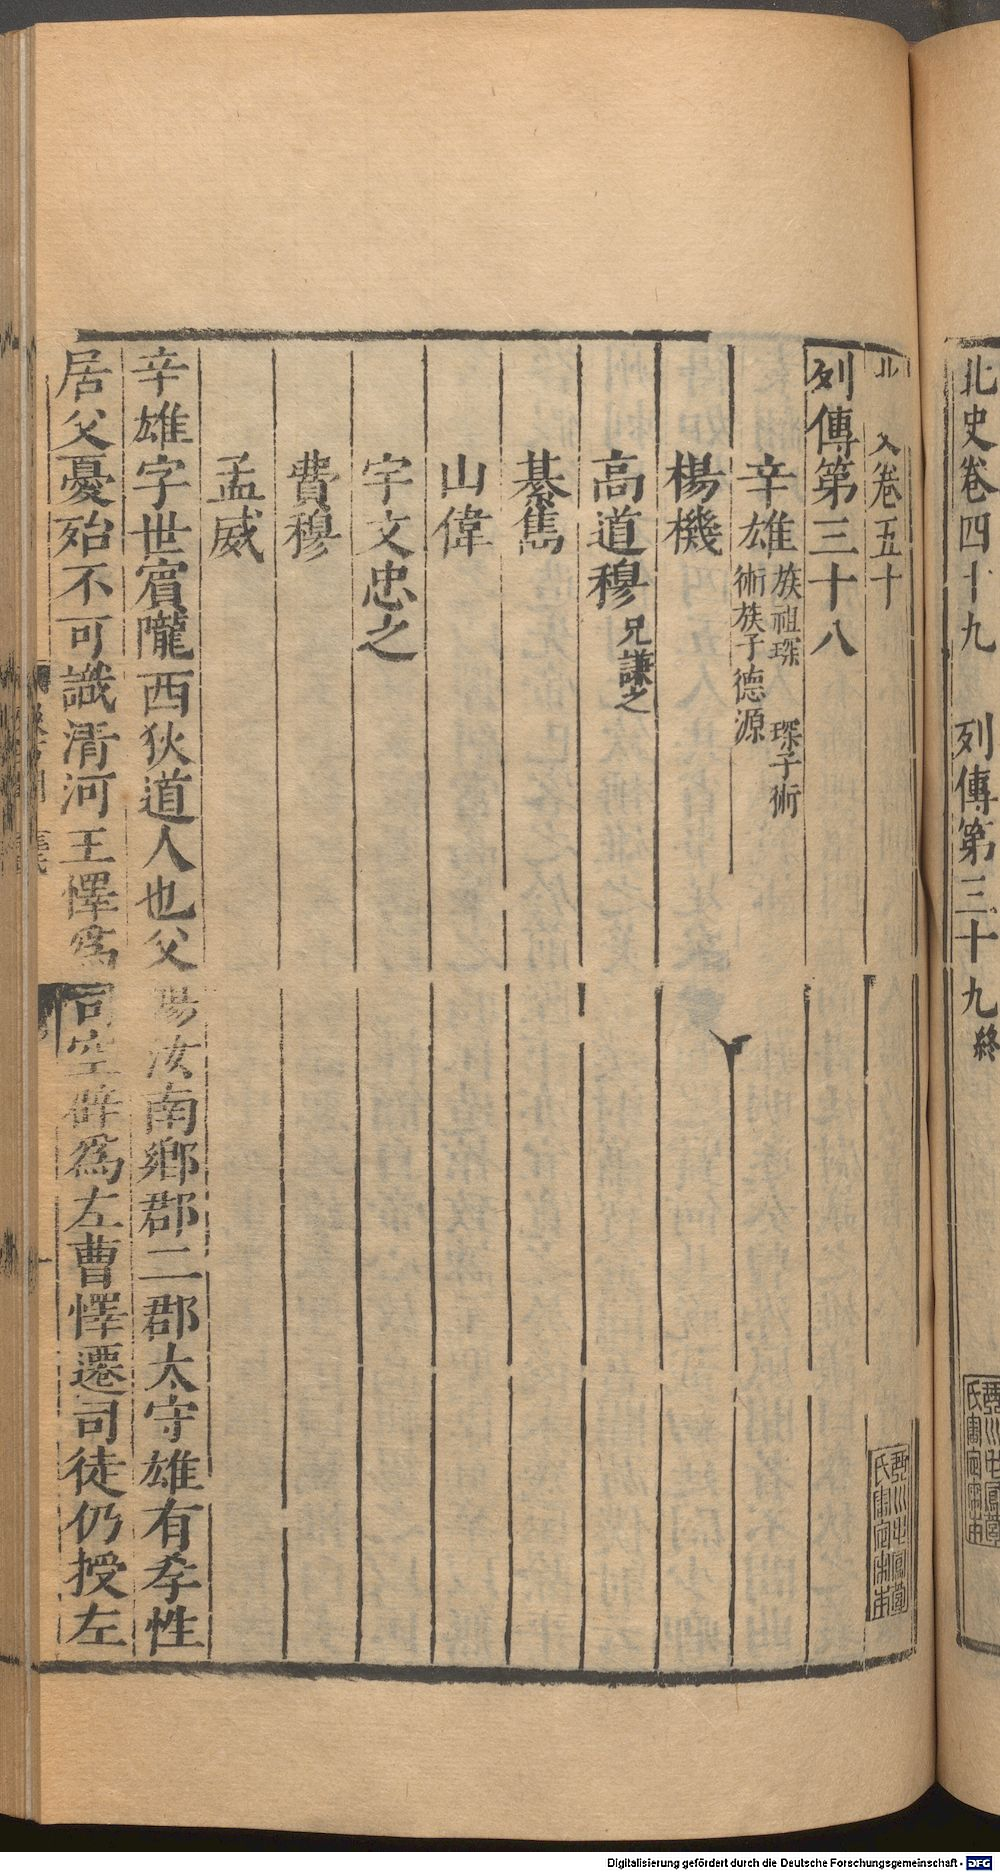 北史卷四十九 列傳第三十九終
北 卷五十
列傳第三十八
辛雄 族祖琛 琛子術
術族子德源
楊機
高道穆 兄謙之
綦儁
山偉
宇文忠之
費穆
孟威
辛雄字世賓隴西狄道人也父 陽汝南鄉郡二郡太守雄有孝性
居父憂殆不可識清河王懌爲司空辟爲左曹懌遷司徒仍授左
Digitalisierung gefördert durch die Deutsche Forschungsgemeinschaft - DFG